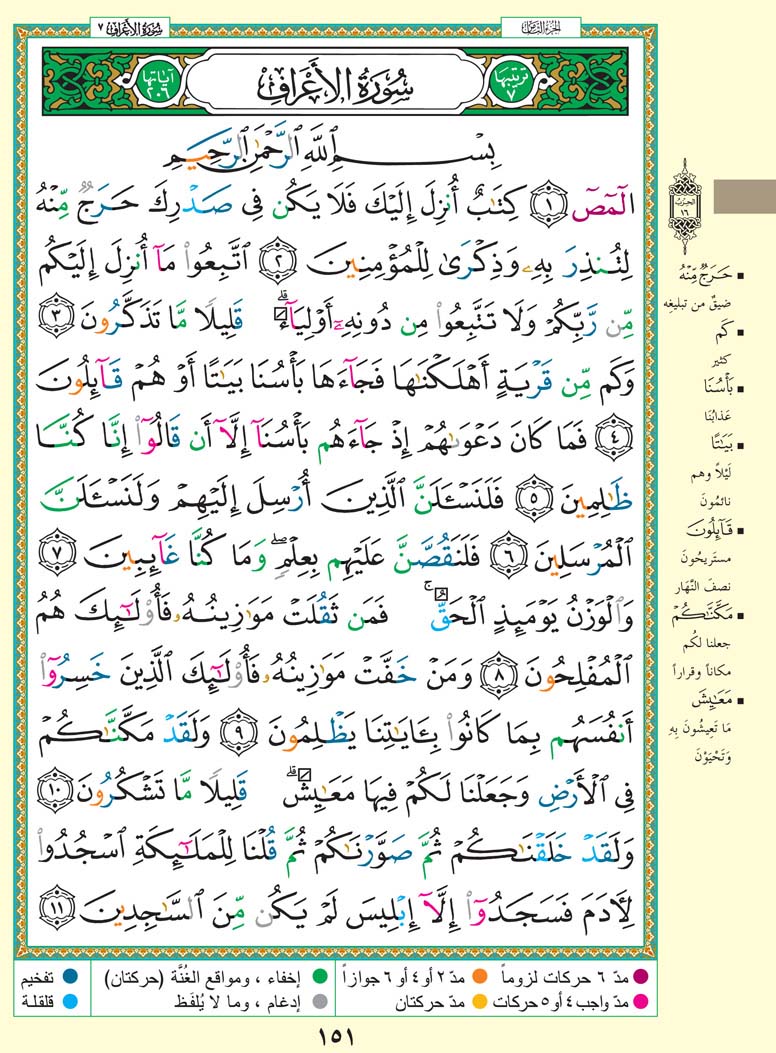 الجزء الثامن
سورة الأعراف ٧
ترتيبها ٧
سُورَةُ الأَعْرَافِ
آياتها ٢٠٦
بِسْمِ اللَّهِ الرَّحْمَٰنِ الرَّحِيمِ
الٓمٓصٓ ١ كِتَٰبٌ أُنزِلَ إِلَيْكَ فَلَا يَكُن فِي صَدْرِكَ حَرَجٌ مِّنْهُ
لِتُنذِرَ بِهِۦ وَذِكْرَىٰ لِلْمُؤْمِنِينَ ٢ ٱتَّبِعُوا۟ مَآ أُنزِلَ إِلَيْكُم
مِّن رَّبِّكُمْ وَلَا تَتَّبِعُوا۟ مِن دُونِهِۦٓ أَوْلِيَآءَ ۗ قَلِيلًا مَّا تَذَكَّرُونَ ٣
وَكَم مِّن قَرْيَةٍ أَهْلَكْنَٰهَا فَجَآءَهَا بَأْسُنَا بَيَٰتًا أَوْ هُمْ قَآئِلُونَ
٤ فَمَا كَانَ دَعْوَىٰهُمْ إِذْ جَآءَهُم بَأْسُنَآ إِلَّآ أَن قَالُوٓا۟ إِنَّا كُنَّا
ظَٰلِمِينَ ٥ فَلَنَسْـَٔلَنَّ ٱلَّذِينَ أُرْسِلَ إِلَيْهِمْ وَلَنَسْـَٔلَنَّ
ٱلْمُرْسَلِينَ ٦ فَلَنَقُصَّنَّ عَلَيْهِم بِعِلْمٍ ۖ وَمَا كُنَّا غَآئِبِينَ ٧
وَٱلْوَزْنُ يَوْمَئِذٍ ٱلْحَقُّ ۚ فَمَن ثَقُلَتْ مَوَٰزِينُهُۥ فَأُو۟لَٰٓئِكَ هُمُ
ٱلْمُفْلِحُونَ ٨ وَمَنْ خَفَّتْ مَوَٰزِينُهُۥ فَأُو۟لَٰٓئِكَ ٱلَّذِينَ خَسِرُوٓا۟
أَنفُسَهُم بِمَا كَانُوا۟ بِـَٔايَٰتِنَا يَظْلِمُونَ ٩ وَلَقَدْ مَكَّنَّٰكُمْ
فِي ٱلْأَرْضِ وَجَعَلْنَا لَكُمْ فِيهَا مَعَٰيِشَ ۗ قَلِيلًا مَّا تَشْكُرُونَ ١٠
وَلَقَدْ خَلَقْنَٰكُمْ ثُمَّ صَوَّرْنَٰكُمْ ثُمَّ قُلْنَا لِلْمَلَٰٓئِكَةِ ٱسْجُدُوا۟
لِءَادَمَ فَسَجَدُوٓا۟ إِلَّآ إِبْلِيسَ لَمْ يَكُن مِّنَ ٱلسَّٰجِدِينَ ١١
الحزب
١٦
حَرَجٌ مِّنْهُ
ضيقٌ من تبليغِه
كَم
كثير
بَأْسُنَا
عَذابُنَا
بَيَٰتًا
لَيْلاً وهم
نائمُونَ
قَآئِلُونَ
مستَريحُونَ
نصفَ النَّهار
مَكَّنَّٰكُمْ
جعلنا لكُم
مكاناً وقراراً
مَعَٰيِشَ
مَا تَعِيشُونَ بِهِ
وَتَحْيَوْنَ
مدّ ٦ حركات لزوماً
مدّ ٢ أو ٤ أو ٦ جوازاً
إخفاء ، ومواقع الغُنَّة (حركتان)
تفخيم
مدّ واجب ٤ أو ٥ حركات
مدّ حركتان
إدغام ، وما لا يُلفَظ
قلقلة
١٥١